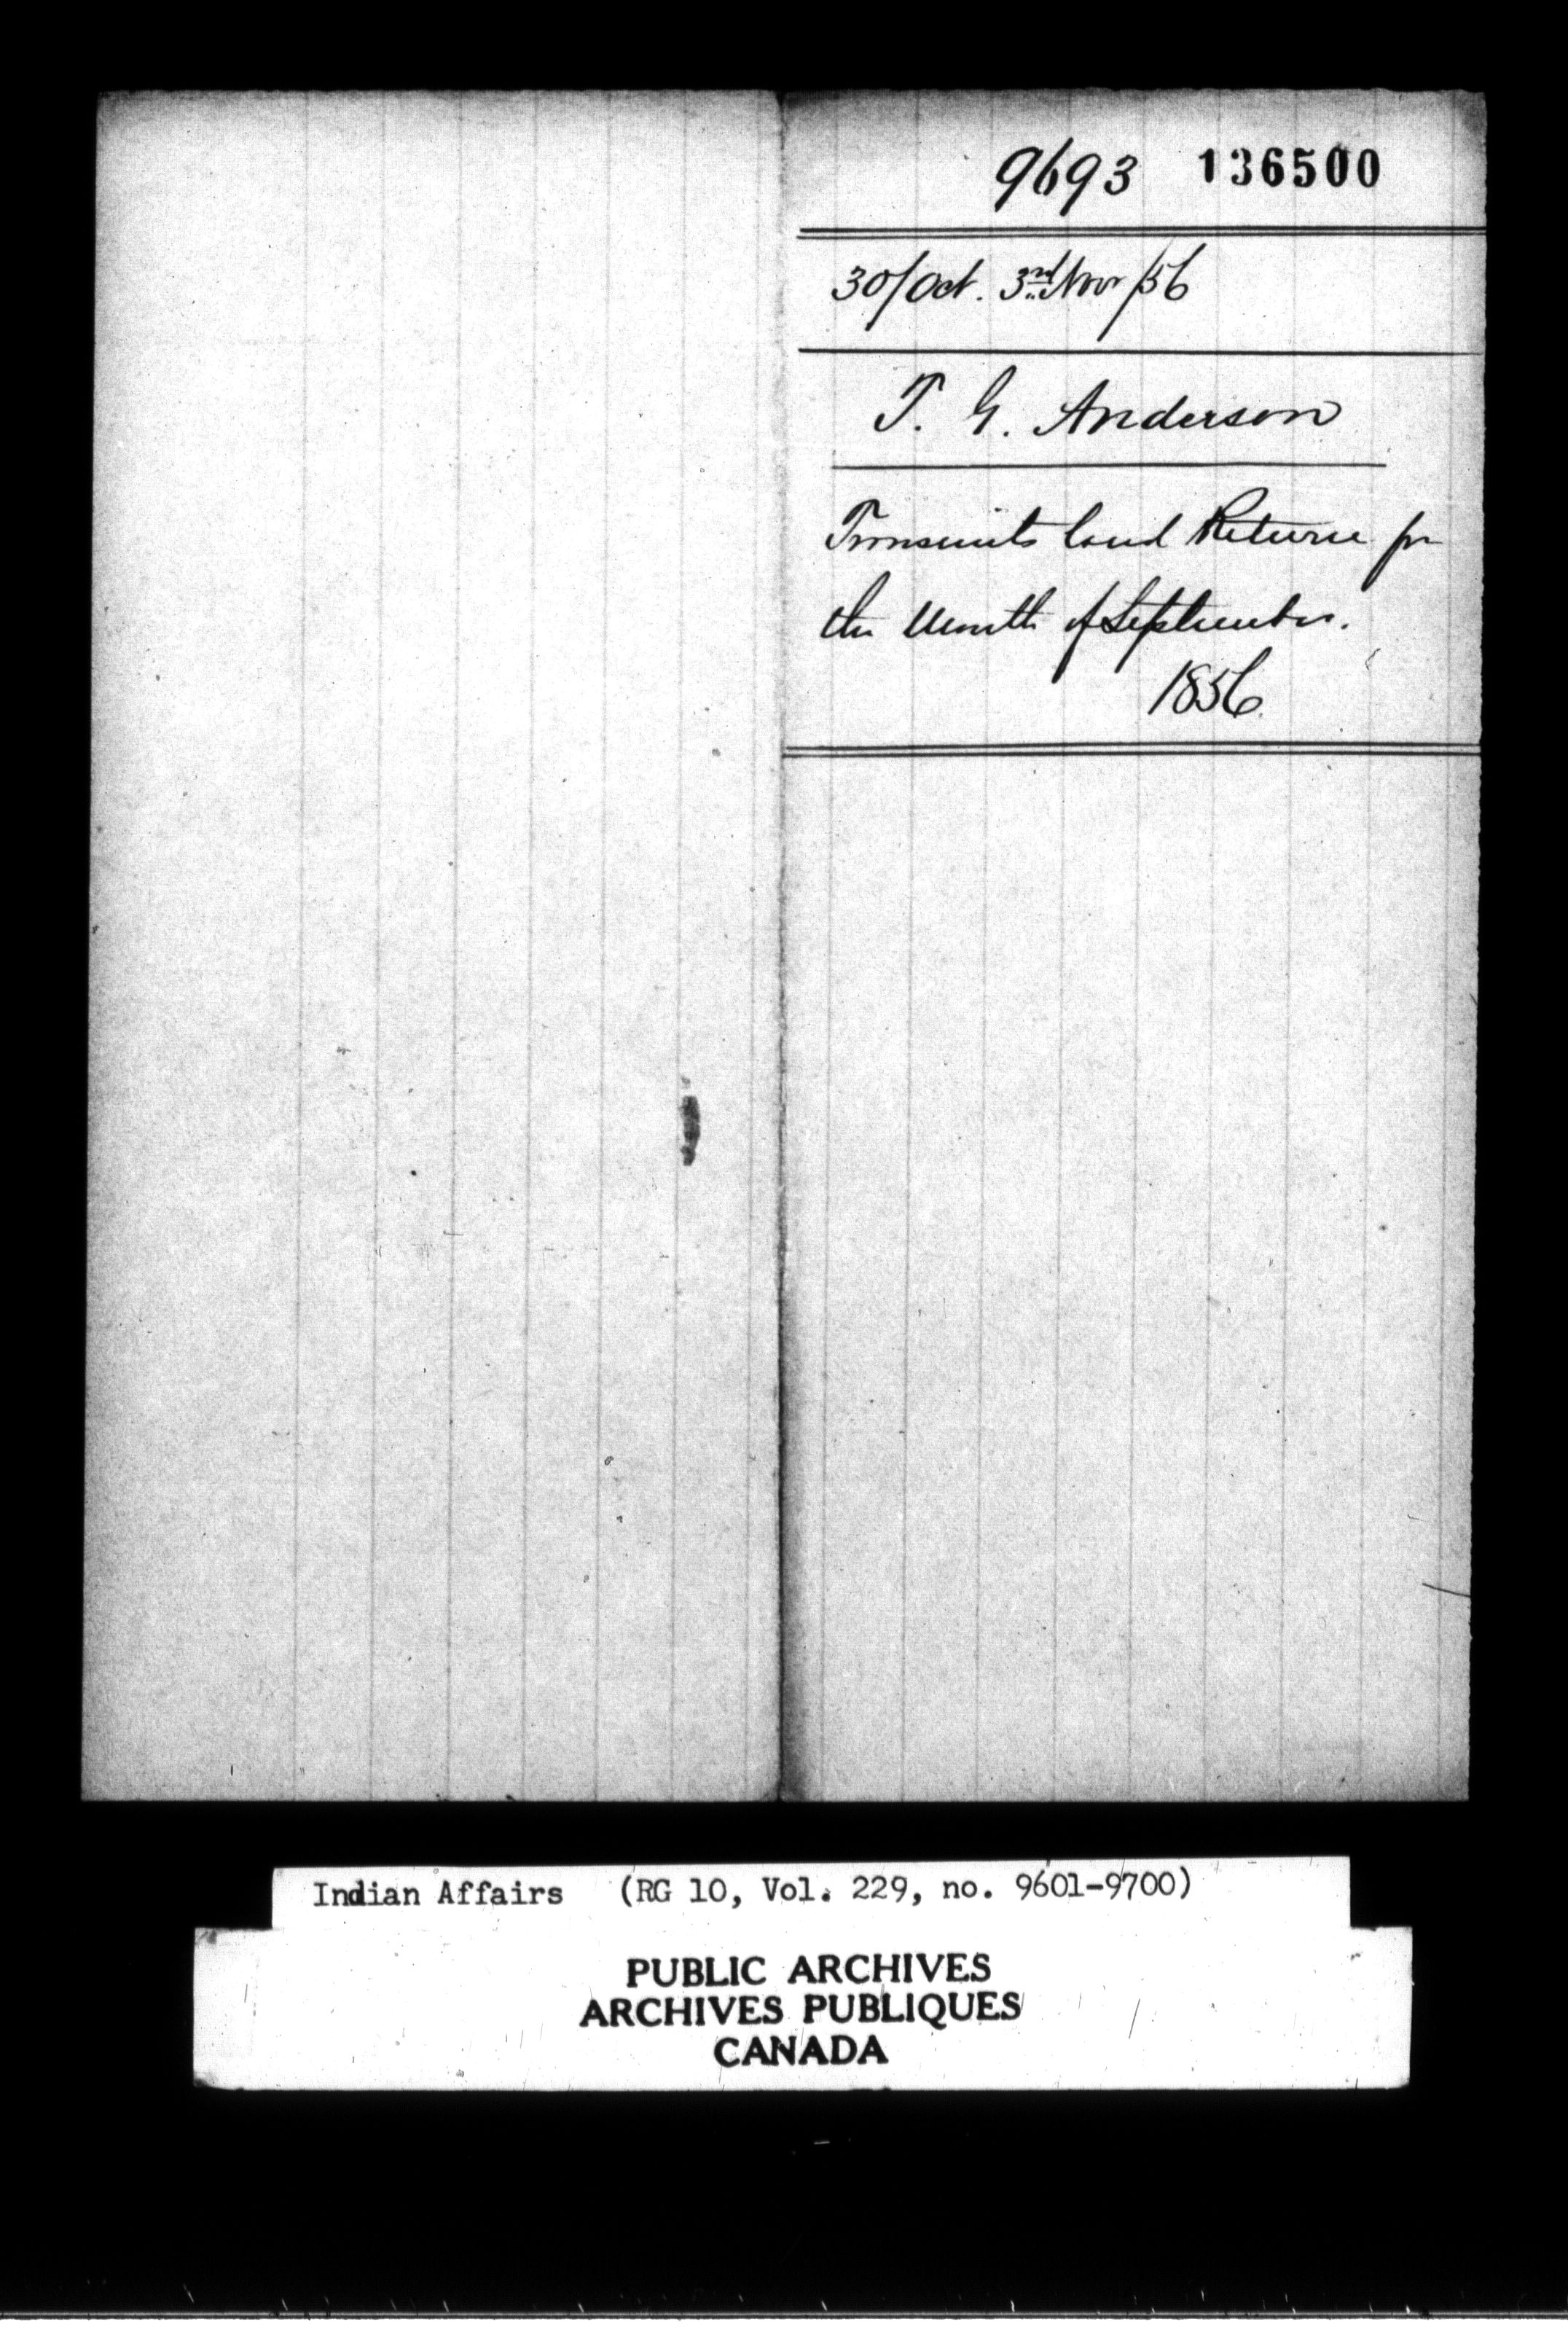 9693 136500
30/Oct. 3rd Nov /56
T. G. Anderson
Transmits land Return for
the Month of September.
1856
Indian Affairs (RG 10, Vol. 229, no. 9601-9700)
PUBLIC ARCHIVES
ARCHIVES PUBLIQUES
CANADA